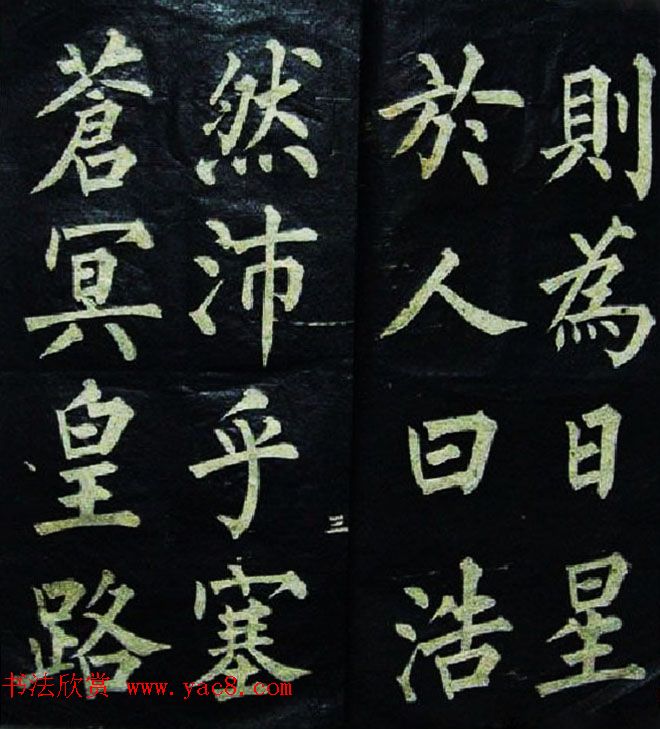 則為日星
於人曰浩
三
然沛乎塞
蒼冥皇路
书法欣赏 www.yac8.com